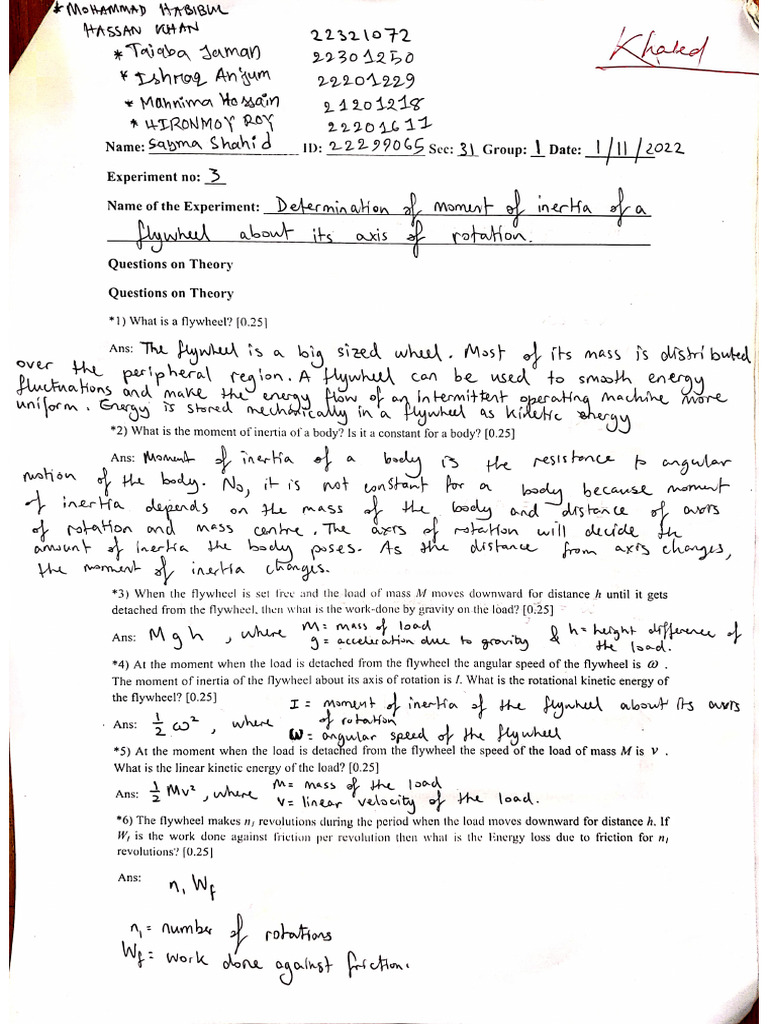 * MOHAMMAD HABIBUL
HASSAN KHAN 22321072
* Taiaba Jaman 22301250
* Ishmaq Anjum 22201229
* Mahnima Hossain 21201218
* HIRONMOY ROY 22201611
Khaled
Name: Sayma Shahid ID: 22299065 Sec: 31 Group: 1 Date: 1/11/2022
Experiment no: 3
Name of the Experiment: Determination of moment of inertia of a
flywheel about its axis of rotation.
Questions on Theory
Questions on Theory
*1) What is a flywheel? [0.25]
Ans: The flywheel is a big sized wheel. Most of its mass is distributed
over the peripheral region. A flywheel can be used to smooth energy
fluctuations and make the energy flow of an intermittent operating machine more
uniform. Energy is stored mechanically in a flywheel as kinetic energy
*2) What is the moment of inertia of a body? Is it a constant for a body? [0.25]
Ans: Moment of inertia of a body is the resistance to angular
motion of the body. No, it is not constant for a body because moment
of inertia depends on the mass of the body and distance of axis
of rotation and mass centre. The axis of rotation will decide the
amount of inertia the body poses. As the distance from axis changes,
the moment of inertia changes.
*3) When the flywheel is set free and the load of mass M moves downward for distance h until it gets
detached from the flywheel, then what is the work-done by gravity on the load? [0.25]
Ans: Mgh, where M = mass of load
g = acceleration due to gravity & h = height difference of
the load.
*4) At the moment when the load is detached from the flywheel the angular speed of the flywheel is ω .
The moment of inertia of the flywheel about its axis of rotation is I. What is the rotational kinetic energy of
the flywheel? [0.25]
I = moment of inertia of the flywheel about its axis
of rotation
Ans: ½ ω², where
ω = angular speed of the flywheel
*5) At the moment when the load is detached from the flywheel the speed of the load of mass M is v .
What is the linear kinetic energy of the load? [0.25]
Ans: ½ Mv², where M = mass of the load
v = linear velocity of the load.
*6) The flywheel makes n₁ revolutions during the period when the load moves downward for distance h. If
Wf is the work done against friction per revolution then what is the Energy loss due to friction for n₁
revolutions? [0.25]
Ans: n₁ Wf
n₁ = number of rotations
Wf = work done against friction.